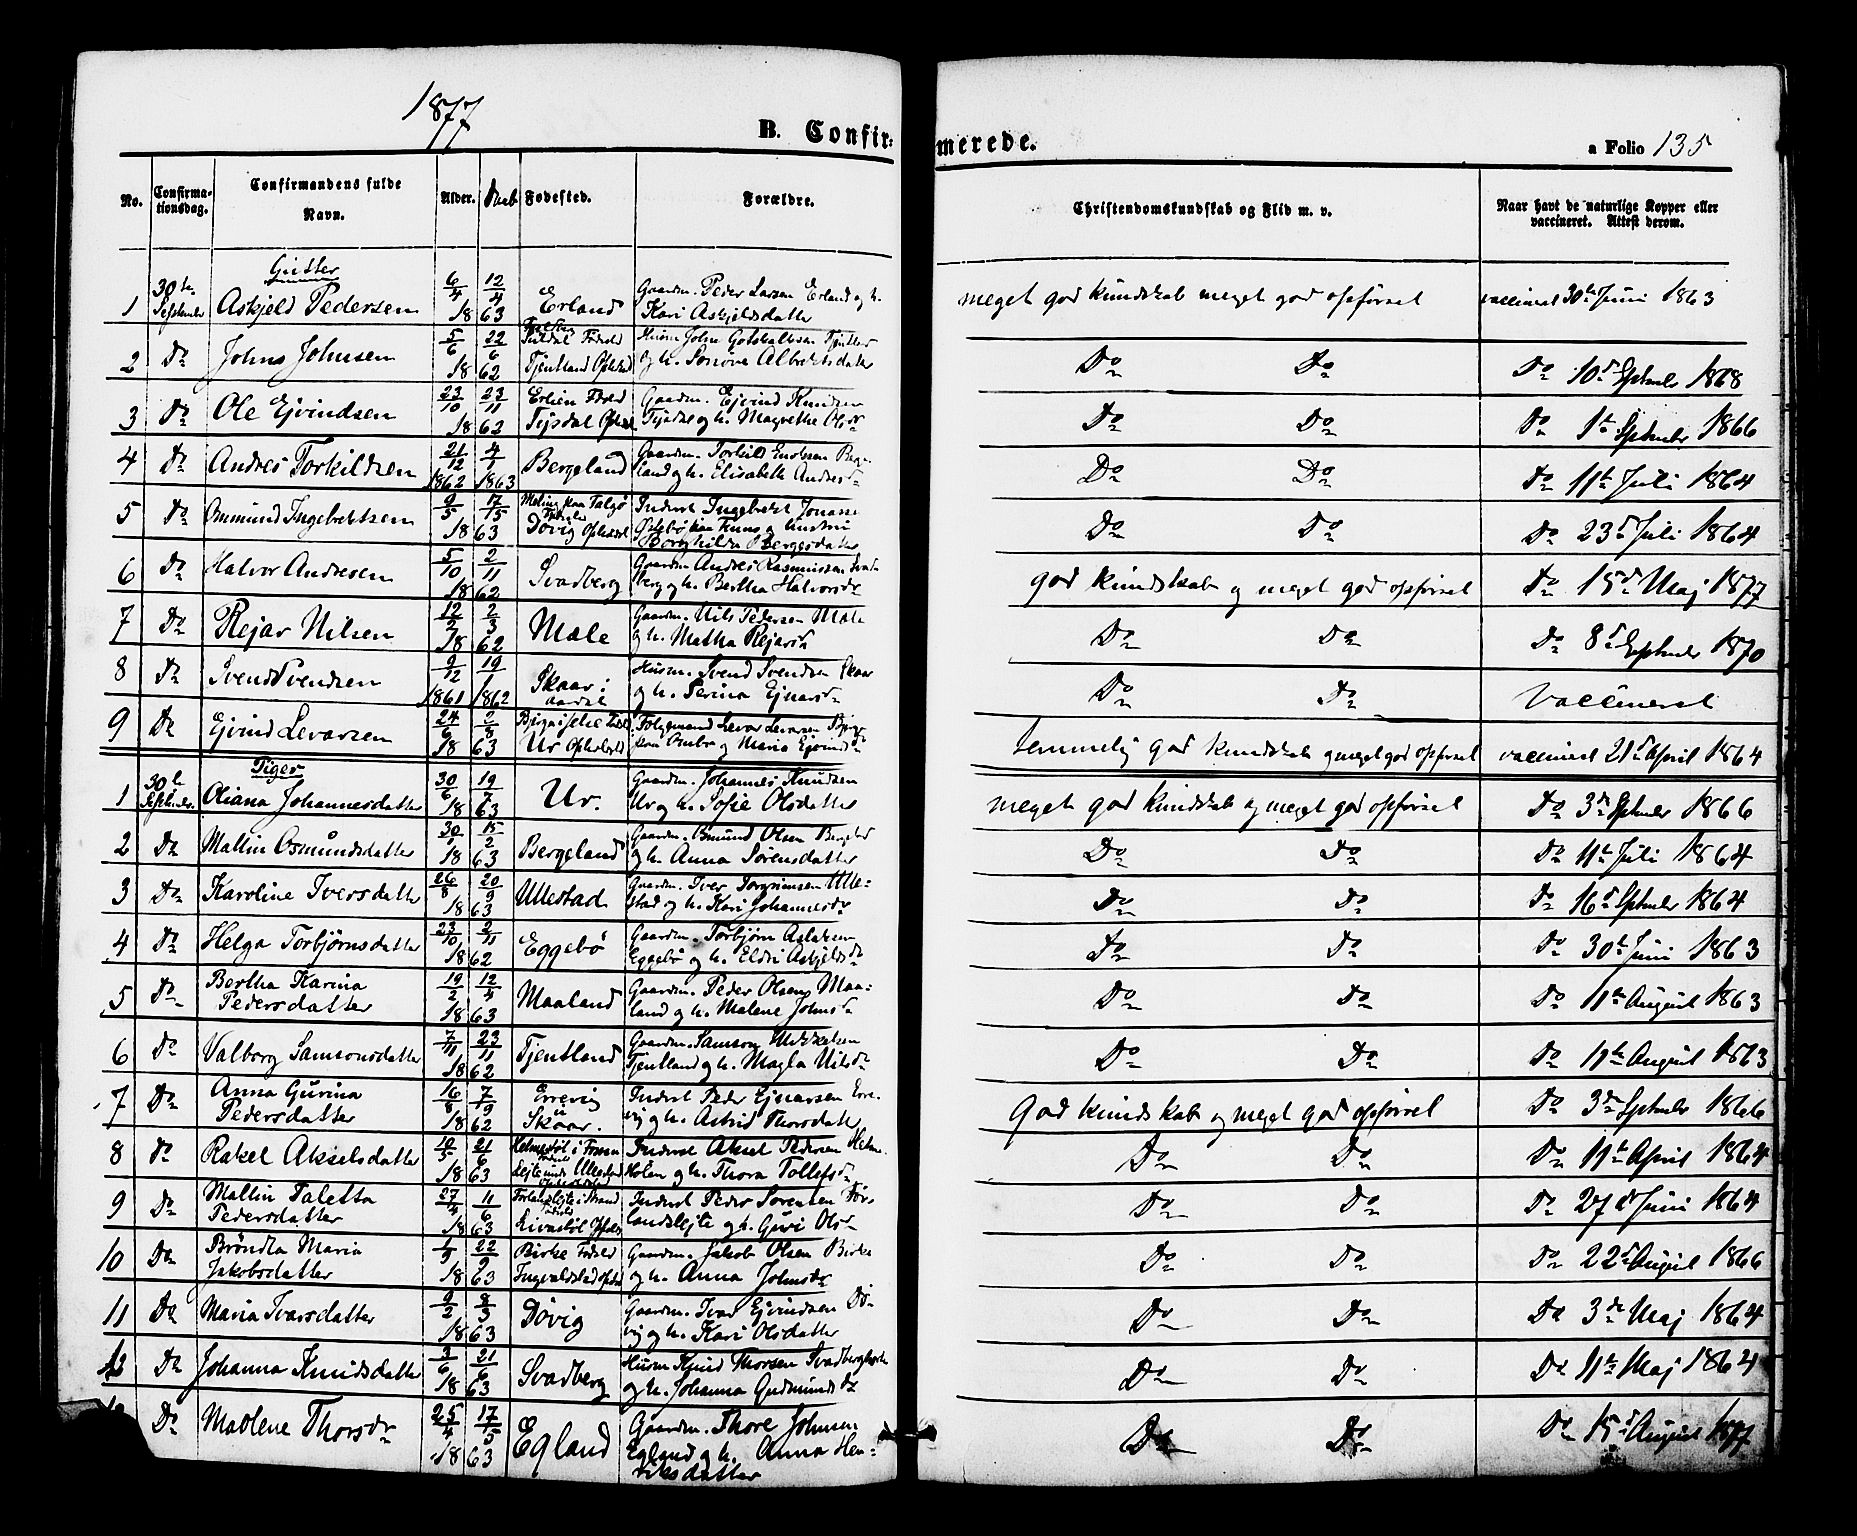 1877
B. Confirmerede.
a Folio 135
No. Confirmationsdag. Confirmandens fulde Navn. Alder. Daab Fødested. Forældre. Christendomskundskab og Flid m. v. Naar havt de naturlige Kopper eller vaccineret. Attest derom.
Gutter
1 30te September Askjeld Pedersen 6/4 12/4 1863 Erland Gaardm. Peder Larsen Erland og h. Kari Askjeldsdatter meget god kundskab meget god opførsel vaccineret 30te Juni 1863
2 Do Johns Johnsen 5/6 22/6 1862 Fødested Tjentland Opholdsted Husm. John Gotskalksen og h. Albertsdatter Do Do Do 10d Septembr 1868
3 Do Ole Ejvindsen 23/10 23/11 1862 Erlien Fødsted Tijsdal Gaardm. Ejvind Knudsen og h. Magrethe Olsdr Do Do Do 1te Septembr 1866
4 Do Andres Torkildsen 21/12 1862 4/1 1863 Bergeland Gaardm. Torkild Bergeland og h. Elisabeth Andresdr Do Do Do 11te Juli 1864
5 Do Ommund Ingebretsen 9/5 17/5 1863 paa Talgø Døvig Inderst Ingebret Jonassen Østebø paa og hustru Borghilda Børgesdatter Do Do Do 23d Juli 1864
6 Do Halvor Andresen 5/10 2/11 1862 Svadberg Gaardm Andres Rasmussen Svadberg og h. Bertha Halvorsdr god kundskab og meget god opførsel Do 15d Maj 1877
7 Do Rejar Nilsen 12/2 2/3 1862 Mæle Gaardm. Nils Pedersen Mæle og h. Martha Rejarsdr Do Do Do 8d Septembr 1870
8 Do Svend Svendsen 9/12 1861 19/1 1862 Skaar i Aardal Husm. Svend Svendsen Skaar og h. Serina Ejnarsdr Do Do Vaccineret
9 Do Ejvind Levarsen 24/6 2/8 1863 Ur Opholdsted Folgemand Levar Levarsen paa Ombo og Maria Ejvindsdr temmelig god kundskab og meget god opførsel vaccineret 21d April 1864
Piger
1 30te Septembr. Oliana Johannesdatter 30/6 19/7 1863 Ur. Gaardm. Johannes Knudsen Ur og h. Sofie Olsdatter meget god kundskab og meget god opførsel Do 3die Septembr 1866
2 Do Mallin Osmundsdatter 30/1 15/2 1863 Bergeland Gaardm. Osmund Olsen Bergeland og h. Anna Sørensdatter Do Do Do 11te Juli 1864
3 Do Karoline Iversdatter 26/8 20/9 1863 Ullestad Gaardm. Iver Torgrimsen Ullestad og h. Kari Johannesdr Do Do Do 16d Septembr 1864
4 Do Helga Torbjørnsdatter 23/10 2/11 1862 Eggebø Gaardm. Torbjørn Aslaksen Eggebø og h. Eldri Askjeldsdr Do Do Do 30te Juni 1863
5 Do Bertha Karina Pedersdatter 19/2 12/4 1863 Maaland Gaardm. Peder Olsen Maaland og h. Malene Johnsdr Do Do Do 11te August 1863
6 Do Valborg Samsonsdatter 7/11 23/11 1862 Tjentland Gaardm. Samson Mikkelsen Tjentland og h. Magla Nilsdr Do Do Do 11te August 1863
7 Do Anna Gurina Pedersdatter 16/8 7/9 1862 Errevig Skaar. Inderst Peder Ejnarsen Errevig og h. Astrid Thorsdatter God kundskab og meget god opførsel Do 3die Septembr 1866
8 Do Rakel Akselsdatter 10/5 21/6 1863 Helmestøl i Fossan Ullestad Inderst Aksel Pedersen og h. Thora Tollefsdr Do Do Do 11te April 1864
9 Do Mallin Taletta Pedersdatter 27/4 11/6 1863 Førlandslejte i Strand Livastøl Inderst Peder Sørensen Førlandslejte og h. Guri Olsdr Do Do Do 27d Juni 1864
10 Do Brøndla Maria Jakobsdatter 22/9 1863 Birke Fødsted Ingvaldstad Gaardm. Jakob Olsen Birke og h. Anna Johnsdr Do Do Do 22d August 1866
11 Do Maria Ivarsdatter 9/2 8/3 1863 Døvig Gaardm. Ivar Ejvindsen Døvig og h. Kari Olsdatter Do Do Do 3die Maj 1864
12 Do Johanna Knudsdatter 3/6 21/6 1863 Svadberg Husm Knud Thorsen og h. Johanna Gudmundsdr Do Do Do 11te Maj 1864
Do Madlene Thorsdr 25/4 17/5 1863 Egland Gaardm. Thore Johnsen Egland og h. Anna Henriksdatter Do Do Do 15d August 1877